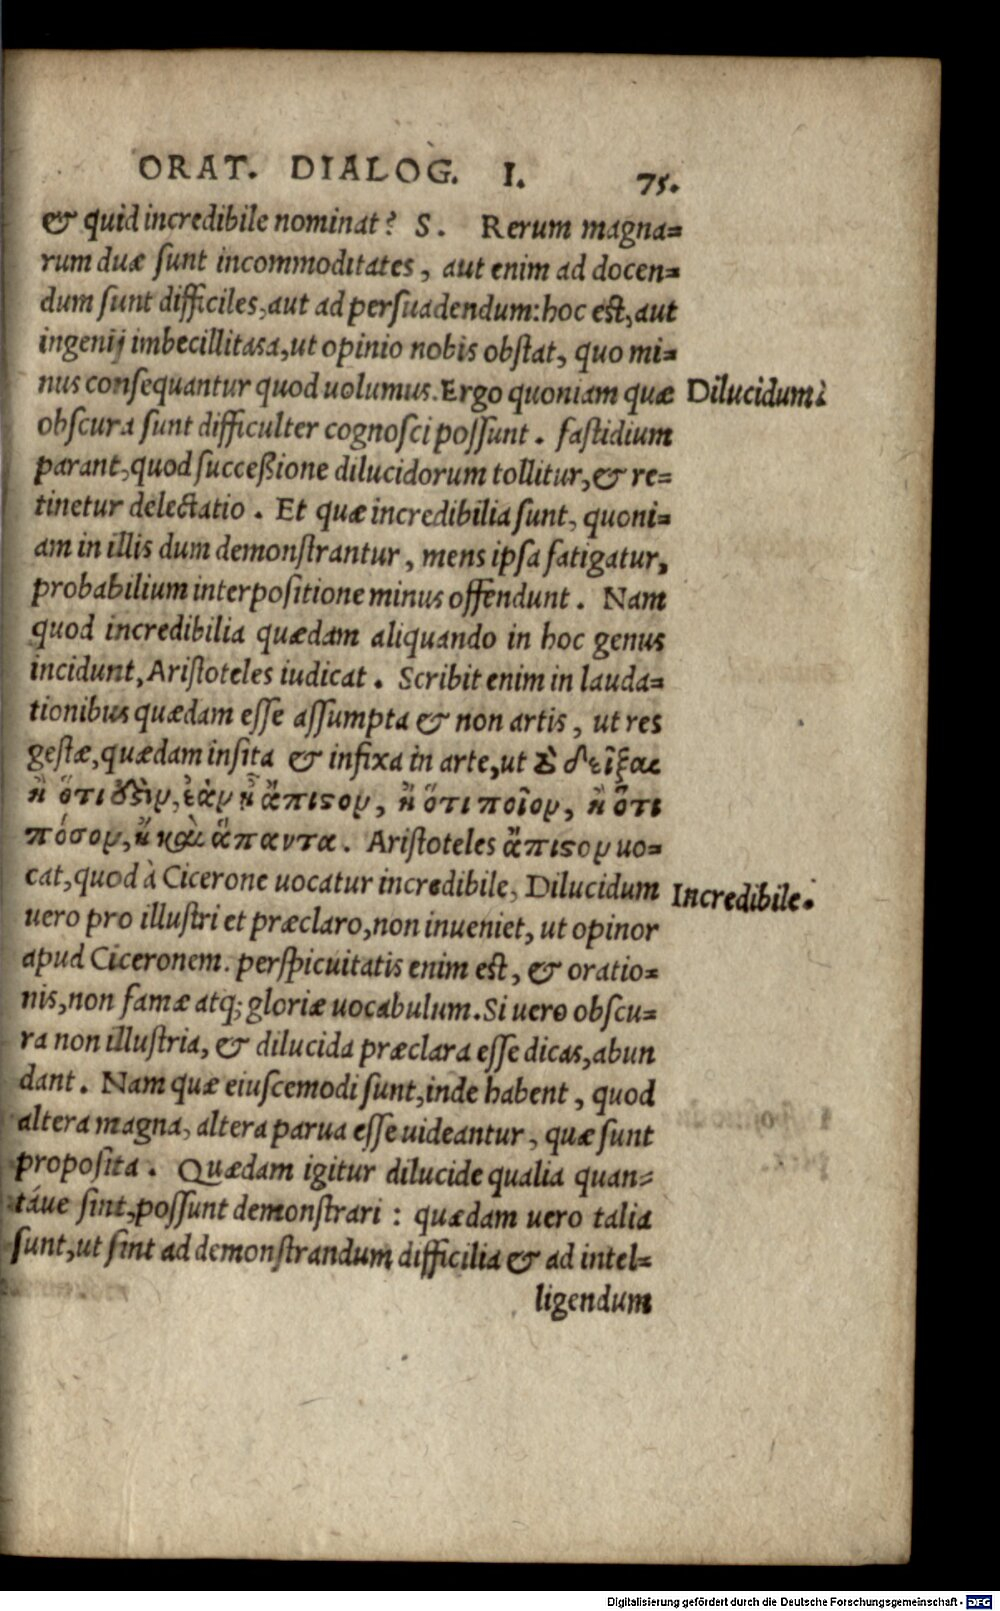 ORAT. DIALOG. I. 75.
& quid incredibile nominat? S. Rerum magna=
rum duæ sunt incommoditates, aut enim ad docen=
dum sunt difficiles, aut ad persuadendum: hoc est, aut
ingenij imbecillitasa, ut opinio nobis obstat, quo mi=
nus consequantur quod uolumus. Ergo quoniam quæ
Dilucidum
obscura sunt difficulter cognosci possunt. fastidium
parant, quod successione dilucidorum tollitur, & re=
tinetur delectatio. Et quæ incredibilia sunt, quoni=
am in illis dum demonstrantur, mens ipsa fatigatur,
probabilium interpositione minus offendunt. Nam
quod incredibilia quædam aliquando in hoc genus
incidunt, Aristoteles iudicat. Scribit enim in lauda=
tionibus quædam esse assumpta & non artis, ut res
gestæ, quædam insita & infixa in arte, ut τὸ δεῖξαι
ἢ ὅτι ἐὰν ᾖ ἄπιστον, ἢ ὅτι ποῖον, ἢ ὅτι
πόσον, ἢ καὶ ἅπαντα. Aristoteles ἄπιστον uo=
cat, quod à Cicerone uocatur incredibile, Dilucidum
Incredibile.
uero pro illustri et præclaro, non inueniet, ut opinor
apud Ciceronem. perspicuitatis enim est, & oratio=
nis, non famæ atq; gloriæ uocabulum. Si uero obscu=
ra non illustria, & dilucida præclara esse dicas, abun
dant. Nam quæ eiuscemodi sunt, inde habent, quod
altera magna, altera parua esse uideantur, quæ sunt
proposita. Quædam igitur dilucide qualia quan=
táue sint, possunt demonstrari: quædam uero talia
sunt, ut sint ad demonstrandum difficilia & ad intel=
ligendum
Digitalisierung gefördert durch die Deutsche Forschungsgemeinschaft - DFG